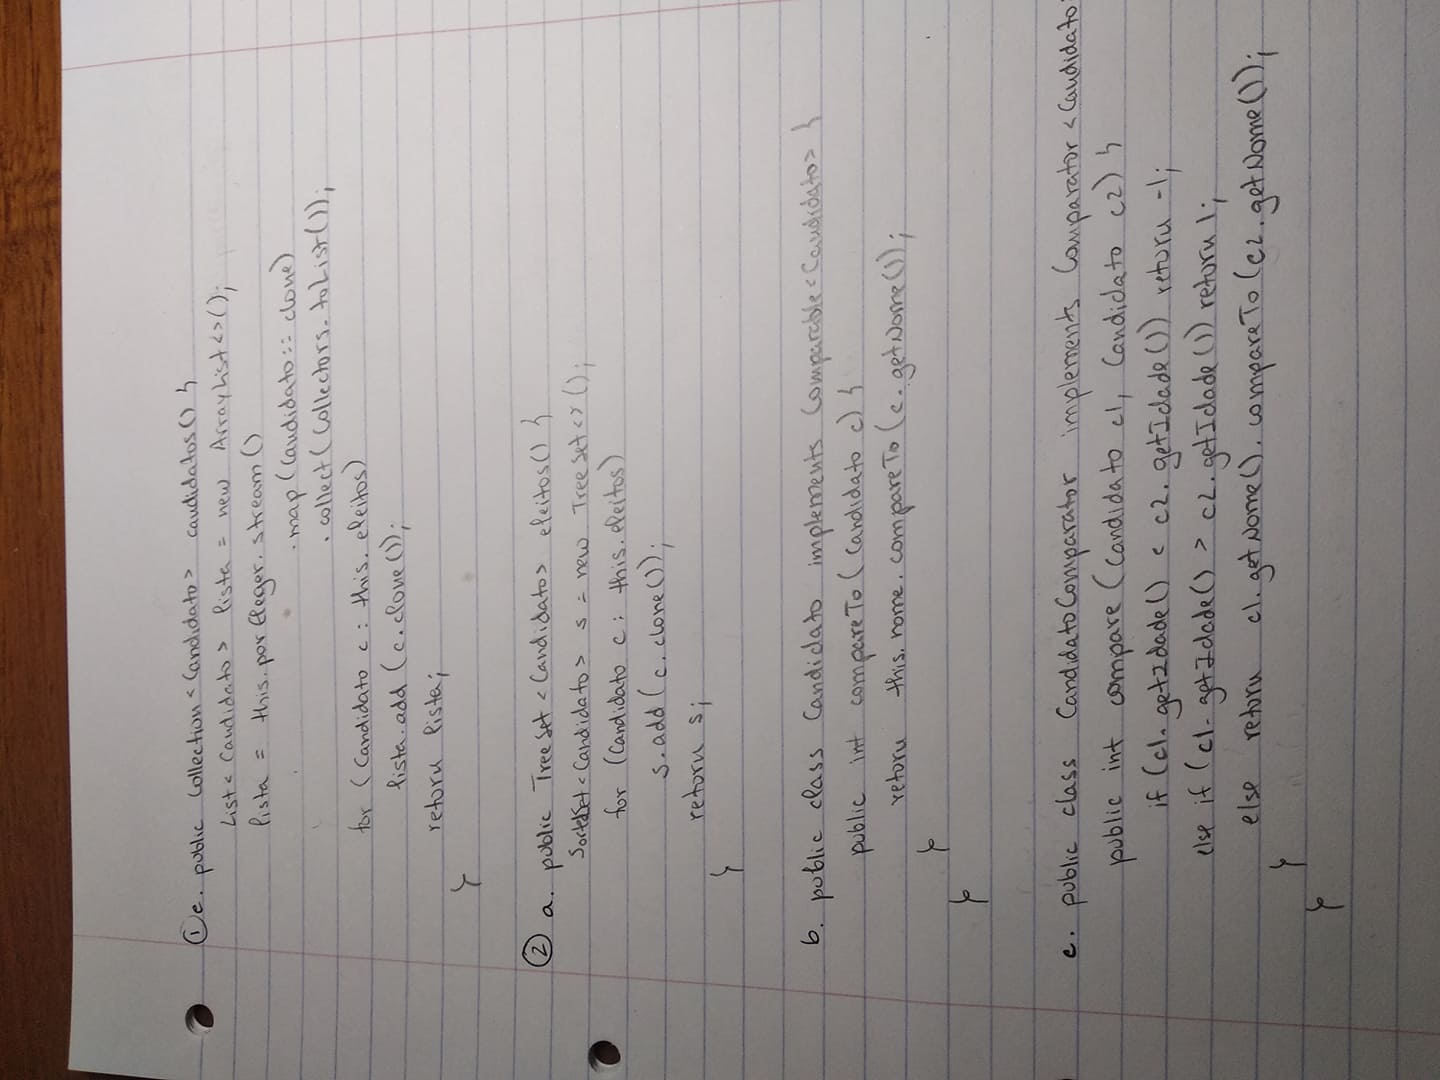 ① c. public Collection<Candidato> candidatos() {
List<Candidato> lista = new ArrayList<>();
lista = this.porEleger.stream()
.map(Candidato::clone)
.collect(Collectors.toList());
for (Candidato c : this.eleitos)
lista.add(c.clone());
return lista;
}
② a. public TreeSet<Candidato> eleitos() {
SortedSet<Candidato> s = new TreeSet<>();
for (Candidato c : this.eleitos)
s.add(c.clone());
return s;
}
b. public class Candidato implements Comparable<Candidato> {
public int compareTo(Candidato c) {
return this.nome.compareTo(c.getNome());
}
}
c. public class CandidatoComparator implements Comparator<Candidato>
public int compare(Candidato c1, Candidato c2) {
if (c1.getIdade() < c2.getIdade()) return -1;
else if (c1.getIdade() > c2.getIdade()) return 1;
else return c1.getNome().compareTo(c2.getNome());
}
}